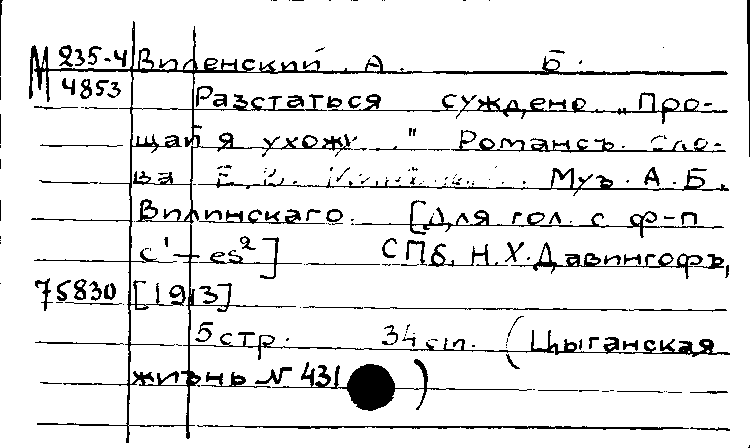 М 235-4 Виленский А. Б.
4853 Разстаться суждено „Про-
щай я ухожу.." Романсъ. Сло-
ва Е. В. Муз. А. Б.
Вилинскаго. [Для гол. с ф-п
c¹ – es²] СПб, Н. Х. Давингофъ,
75830 [1913]
5 стр. 34 cm. (Цыганская
жизнь N 431 )